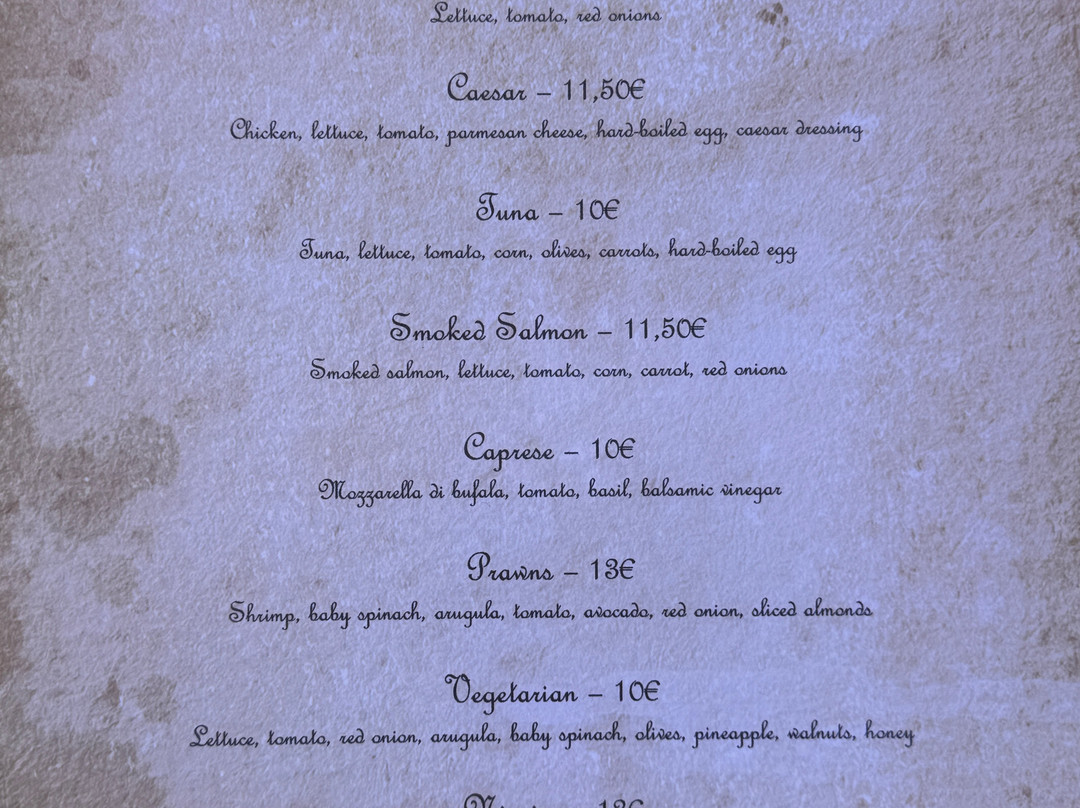 Lettuce, tomato, red onions
Caesar – 11,50€
Chicken, lettuce, tomato, parmesan cheese, hard-boiled egg, caesar dressing
Tuna – 10€
Tuna, lettuce, tomato, corn, olives, carrots, hard-boiled egg
Smoked Salmon – 11,50€
Smoked salmon, lettuce, tomato, corn, carrot, red onions
Caprese – 10€
Mozzarella di bufala, tomato, basil, balsamic vinegar
Prawns – 13€
Shrimp, baby spinach, arugula, tomato, avocado, red onion, sliced almonds
Vegetarian – 10€
Lettuce, tomato, red onion, arugula, baby spinach, olives, pineapple, walnuts, honey